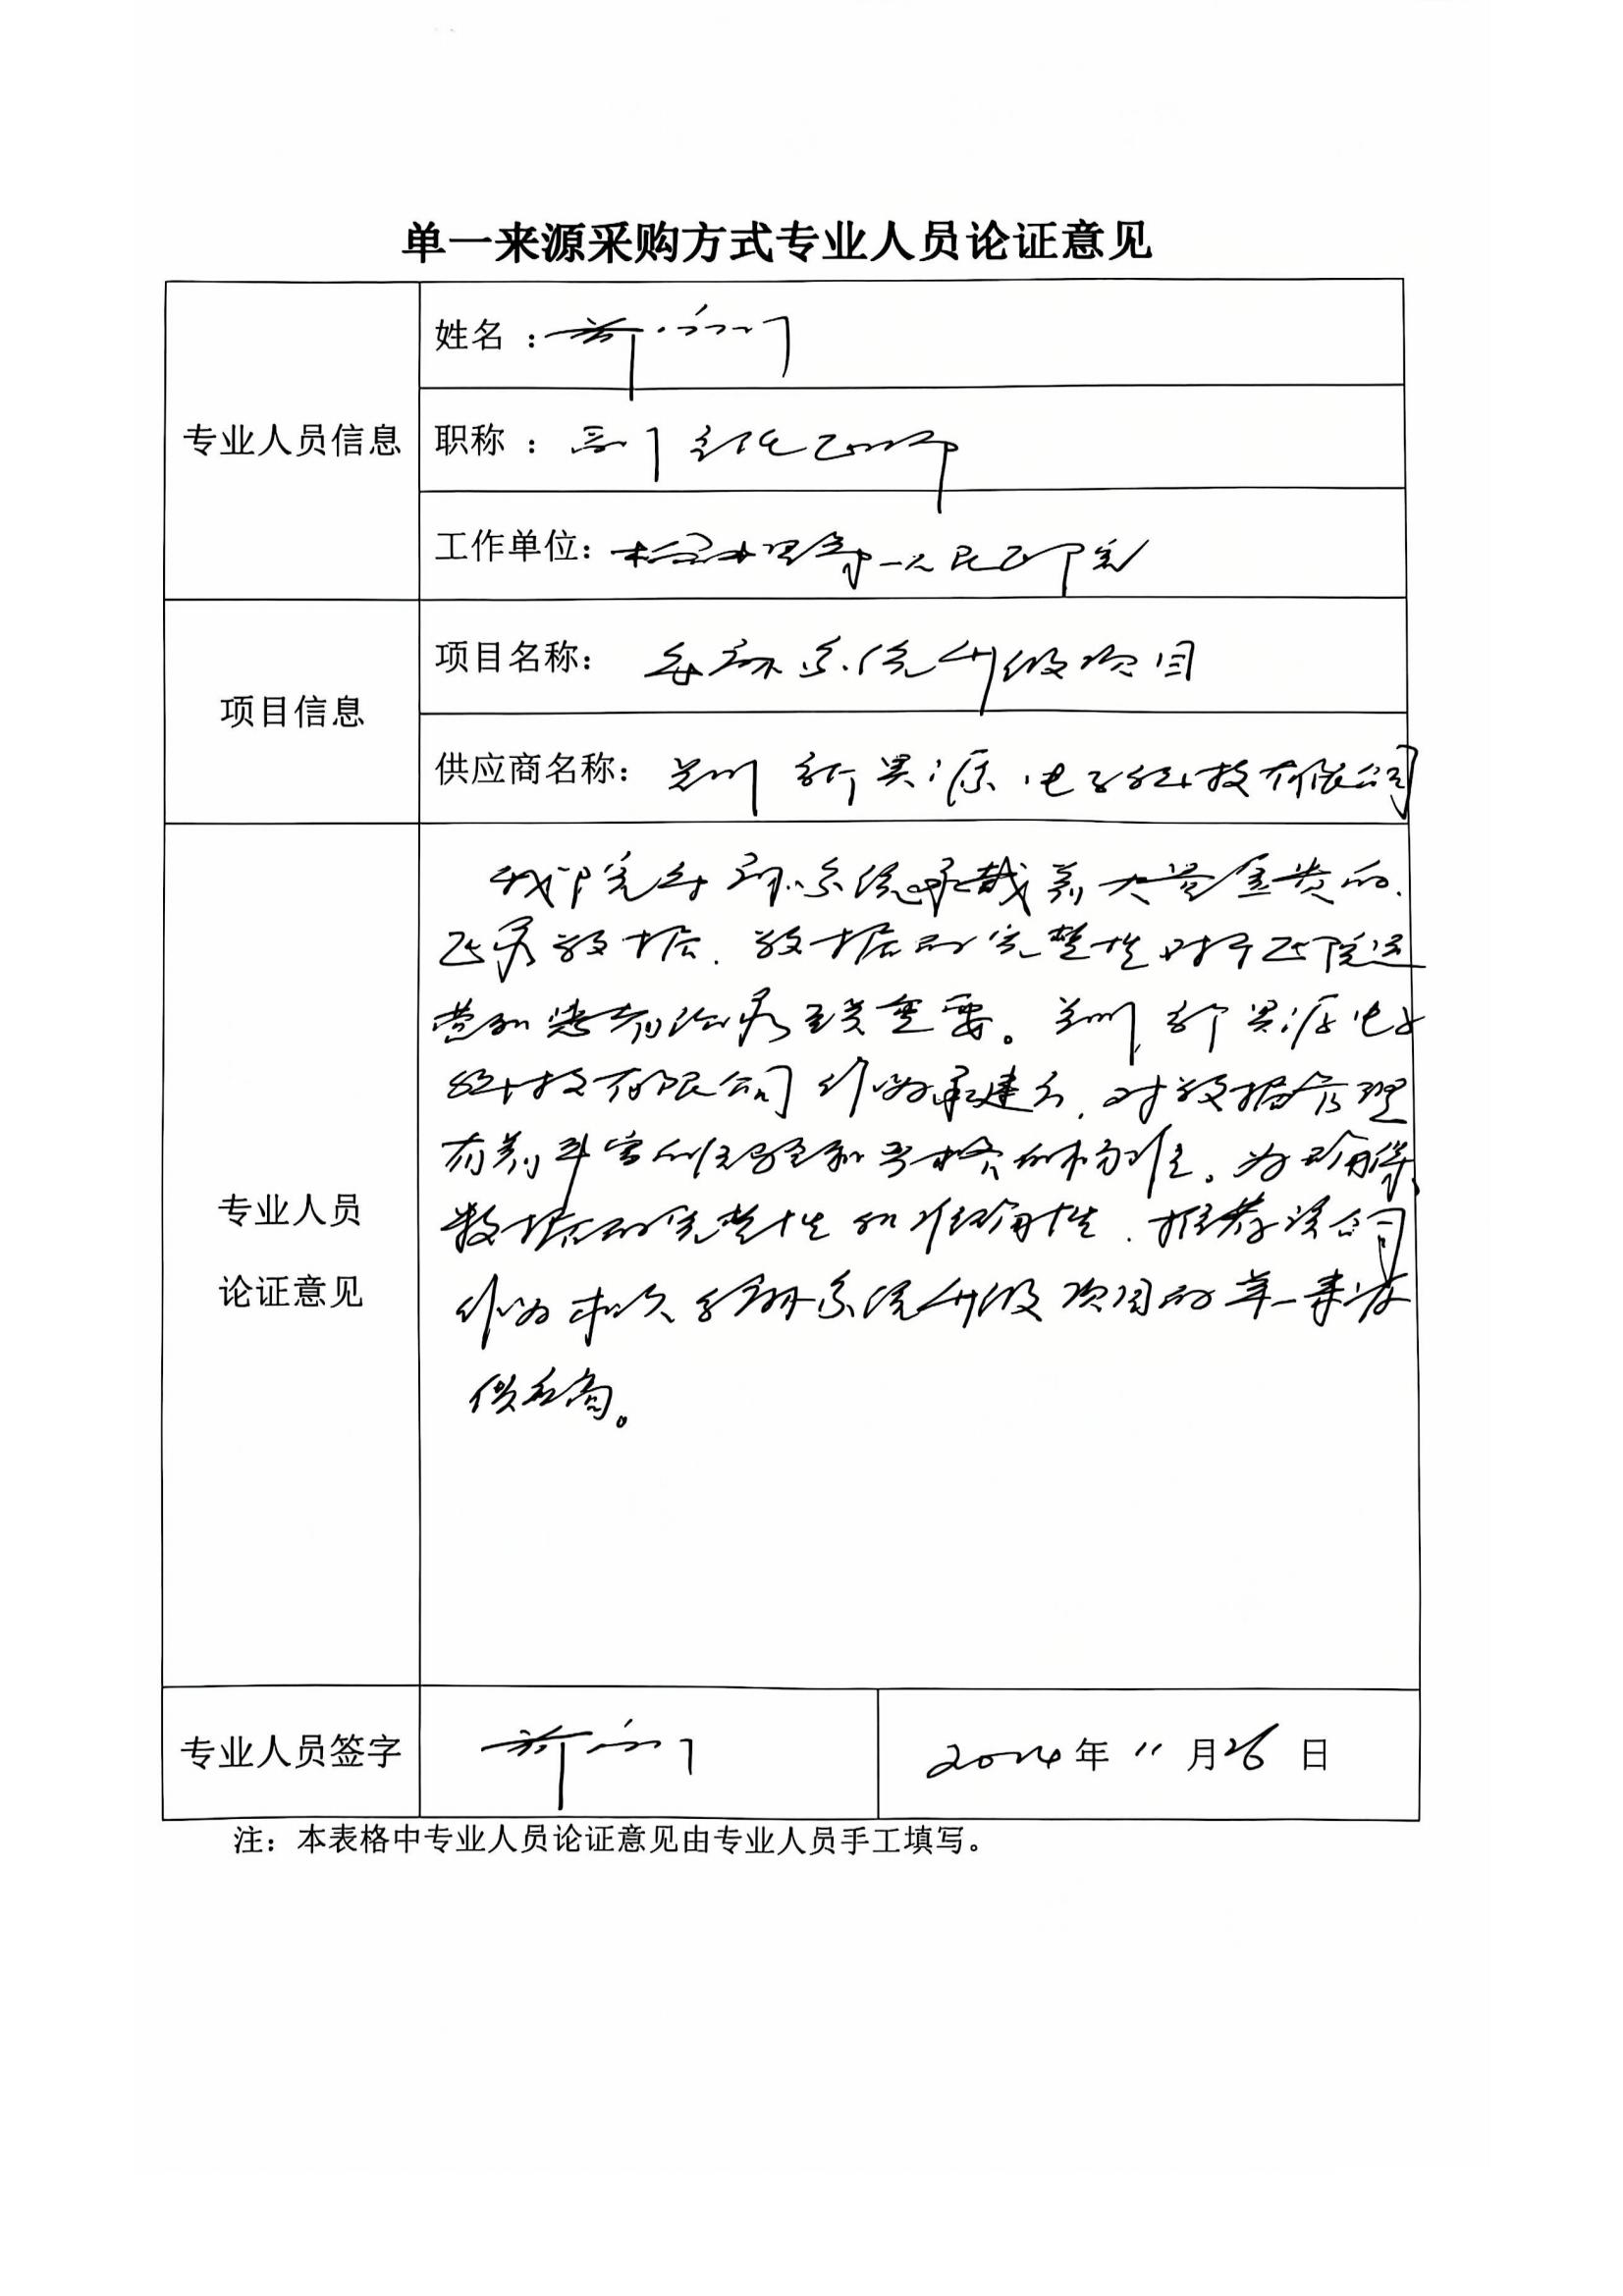 单一来源采购方式专业人员论证意见
专业人员信息
姓名：
职称：副主任医师
工作单位：第一人民医院
项目信息
项目名称：手麻系统升级项目
供应商名称：州新源电子科技有限公司
专业人员
论证意见
我院手麻系统承载着大量宝贵的
医疗数据，数据的完整性对于医院运
营和患者治疗至关重要。州新源电子
科技有限公司作为承建方，对数据管理
有着丰富的经验和严格的标准。为确保
数据的完整性和准确性，推荐该公司
作为本次手麻系统升级项目的单一来源
供应商。
专业人员签字
2024年11月26日
注：本表格中专业人员论证意见由专业人员手工填写。